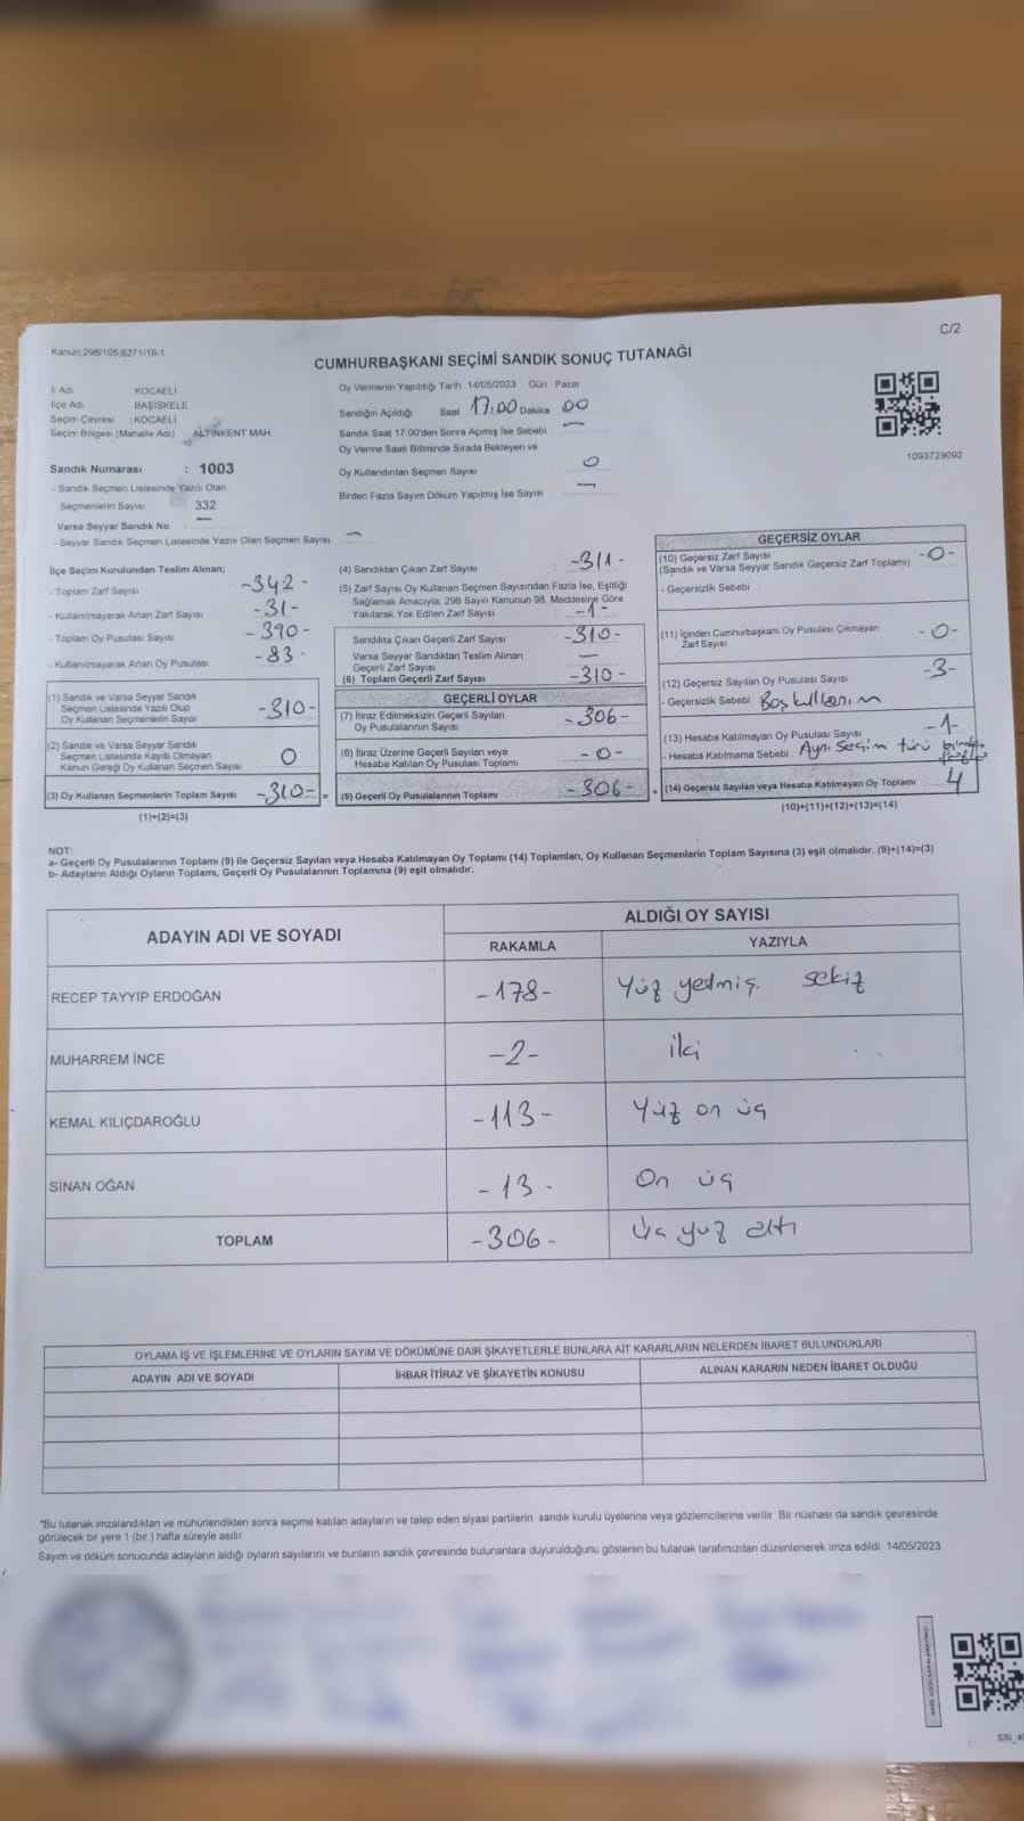 C/2
Kanun:298/105,6271/18-1
CUMHURBAŞKANI SEÇİMİ SANDIK SONUÇ TUTANAĞI
İl Adı KOCAELİ
İlçe Adı BAŞİSKELE
Seçim Çevresi : KOCAELİ
Seçim Bölgesi (Mahalle Adı) ALTINKENT MAH.
Sandık Numarası : 1003
- Sandık Seçmen Listesinde Yazılı Olan
Seçmenlerin Sayısı 332
Varsa Seyyar Sandık No —
- Seyyar Sandık Seçmen Listesinde Yazılı Olan Seçmen Sayısı —
Oy Vermenin Yapıldığı Tarih 14/05/2023 Gün Pazar
Sandığın Açıldığı Saat 17:00 Dakika 00
Sandık Saat 17:00'den Sonra Açılmış İse Sebebi —
Oy Verme Saati Bitiminde Sırada Bekleyen ve
Oy Kullandırılan Seçmen Sayısı 0
Birden Fazla Sayım Döküm Yapılmış İse Sayısı —
1093729092
İlçe Seçim Kurulundan Teslim Alınan;
- Toplam Zarf Sayısı -342-
- Kullanılmayarak Artan Zarf Sayısı -31-
- Toplam Oy Pusulası Sayısı -390-
- Kullanılmayarak Artan Oy Pusulası -83-
(1) Sandık ve Varsa Seyyar Sandık
Seçmen Listesinde Yazılı Olup
Oy Kullanan Seçmenlerin Sayısı -310-
(2) Sandık ve Varsa Seyyar Sandık
Seçmen Listesinde Kayıtlı Olmayan
Kanun Gereği Oy Kullanan Seçmen Sayısı 0
(3) Oy Kullanan Seçmenlerin Toplam Sayısı -310- =
(1)+(2)=(3)
(4) Sandıktan Çıkan Zarf Sayısı -311-
(5) Zarf Sayısı Oy Kullanan Seçmen Sayısından Fazla İse, Eşitliği
Sağlamak Amacıyla; 298 Sayılı Kanunun 98. Maddesine Göre
Yakılarak Yok Edilen Zarf Sayısı -1-
Sandıkta Çıkan Geçerli Zarf Sayısı -310-
Varsa Seyyar Sandıktan Teslim Alınan
Geçerli Zarf Sayısı —
(6) Toplam Geçerli Zarf Sayısı -310-
GEÇERLİ OYLAR
(7) İtiraz Edilmeksizin Geçerli Sayılan
Oy Pusulalarının Sayısı -306-
(8) İtiraz Üzerine Geçerli Sayılan veya
Hesaba Katılan Oy Pusulası Toplamı -0-
(9) Geçerli Oy Pusulalarının Toplamı -306- +
GEÇERSİZ OYLAR
(10) Geçersiz Zarf Sayısı -0-
(Sandık ve Varsa Seyyar Sandık Geçersiz Zarf Toplamı)
- Geçersizlik Sebebi
(11) İçinden Cumhurbaşkanı Oy Pusulası Çıkmayan
Zarf Sayısı -0-
(12) Geçersiz Sayılan Oy Pusulası Sayısı -3-
- Geçersizlik Sebebi Boş kullanım
(13) Hesaba Katılmayan Oy Pusulası Sayısı -1-
- Hesaba Katılmama Sebebi Aynı Seçim türü
(14) Geçersiz Sayılan veya Hesaba Katılmayan Oy Toplamı 4
(10)+(11)+(12)+(13)=(14)
NOT:
a- Geçerli Oy Pusulalarının Toplamı (9) ile Geçersiz Sayılan veya Hesaba Katılmayan Oy Toplamı (14) Toplamları, Oy Kullanan Seçmenlerin Toplam Sayısına (3) eşit olmalıdır. (9)+(14)=(3)
b- Adayların Aldığı Oyların Toplamı, Geçerli Oy Pusulalarının Toplamına (9) eşit olmalıdır.
ADAYIN ADI VE SOYADI
ALDIĞI OY SAYISI
RAKAMLA YAZIYLA
RECEP TAYYIP ERDOĞAN -178- Yüz yetmiş. sekiz
MUHARREM İNCE -2- iki
KEMAL KILIÇDAROĞLU -113- Yüz on üç
SİNAN OĞAN -13- On üç
TOPLAM -306- üç yüz altı
OYLAMA İŞ VE İŞLEMLERİNE VE OYLARIN SAYIM VE DÖKÜMÜNE DAİR ŞİKAYETLERLE BUNLARA AİT KARARLARIN NELERDEN İBARET BULUNDUKLARI
ADAYIN ADI VE SOYADI İHBAR İTİRAZ VE ŞİKAYETİN KONUSU ALINAN KARARIN NEDEN İBARET OLDUĞU
"Bu tutanak imzalandıktan ve mühürlendikten sonra seçime katılan adayların ve talep eden siyasi partilerin sandık kurulu üyelerine veya gözlemcilerine verilir. Bir nüshası da sandık çevresinde
görülecek bir yere 1 (bir ) hafta süreyle asılır.
Sayım ve döküm sonucunda adayların aldığı oyların sayılarını ve bunların sandık çevresinde bulunanlara duyurulduğunu gösteren bu tutanak tarafımızdan düzenlenerek imza edildi. 14/05/2023